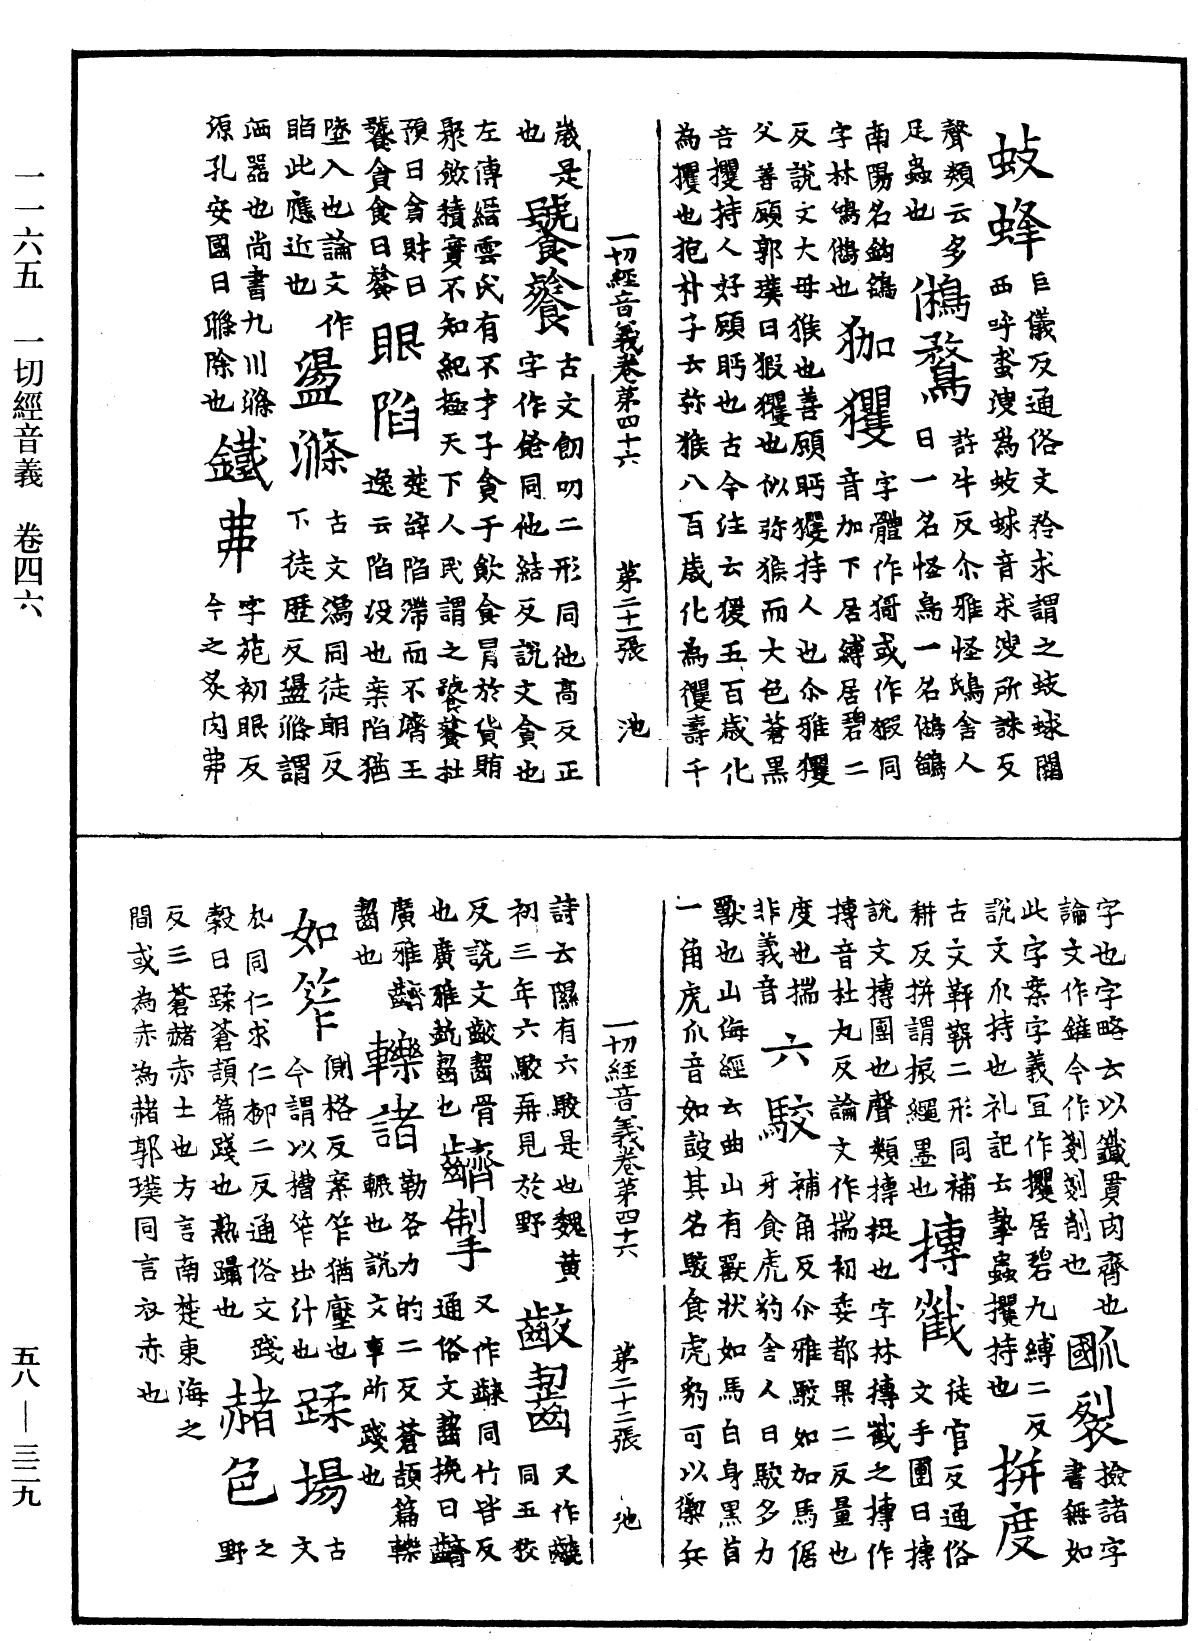 一一六五　一切經音義　卷四六
蚑蜂 巨儀反通俗文矜求謂之蚑蛷關
西呼蛬溲為蚑蛷音求溲所誅反
聲類云多
足蟲也 鵂鶩 許牛反尒雅怪鴟舍人
曰一名怪鳥一名鵂鶹
南陽名鉤鵅
字林鴝鵂也 猳玃 字體作㺔或作猳同
音加下居縛居碧二
反說文大母猴也善顧眄玃持人也尒雅玃
父善顧郭璞曰猳玃也似弥猴而大色蒼黑
音攫持人好顧眄也古今注云猨五百歲化
為玃也抱朴子云弥猴八百歲化為玃壽千
一切經音義卷第四十六　第二十一張　池
歲是
也 饕餮 古文飸叨二形同他高反正
字作飻同他結反說文貪也
左傳縉雲氏有不才子貪于飲食冒於貨賄
聚斂積實不知紀極天下人民謂之饕餮杜
預曰貪財曰
饕貪食曰餮 眼陷 楚辭陷滯而不濟王
逸云陷没也案陷猶
墜入也論文作
䧟此應近也 盪滌 古文瀉同徒朗反
下徒歷反盪滌謂
洒器也尚書九川滌
源孔安國曰滌除也 鐵丳 字苑初眼反
今之炙肉丳
字也字略云以鐵貫肉齊也
論文作鏟今作剗剗削也 𤓰裂 撿諸字
書無如
此字案字義冝作攫居碧九縛二反
說文爪持也礼記云摯蟲攫持也 拼度
古文䩬䩶二形同補
耕反拼謂振繩墨也 摶截 徒官反通俗
文手團曰摶
說文摶團也聲類摶捉也字林摶截之摶作
摶音杜丸反論文作揣初委都果二反量也
度也揣
非義音 六駮 補角反尒雅駮如加馬倨
牙食虎豹舍人曰駮多力
獸也山海經云曲山有獸狀如馬白身黑首
一角虎爪音如詖其名駮食虎豹可以禦兵
一切經音義卷第四十六　第二十二張　池
詩云隰有六駮是也魏黃
初三年六駮再見於野 齩齧 又作䶧
同五狡
反說文齩齧骨
也廣雅齩齧也 齌掣 又作䶩同竹皆反
通俗文齧挽曰䶩
廣雅䶩
齧也 轢諸 勒各力的二反蒼頡篇轢
輾也說文車所踐也
如笮 側格反案笮猶壓也
今謂以槽笮出汁也 蹂場 古
文
厹同仁求仁柳二反通俗文踐
穀曰蹂蒼頡篇踐也熟躡也 赭色 之
野
反三蒼赭赤土也方言南楚東海之
間或為赤為赭郭璞同言衣赤也
五八—三二九